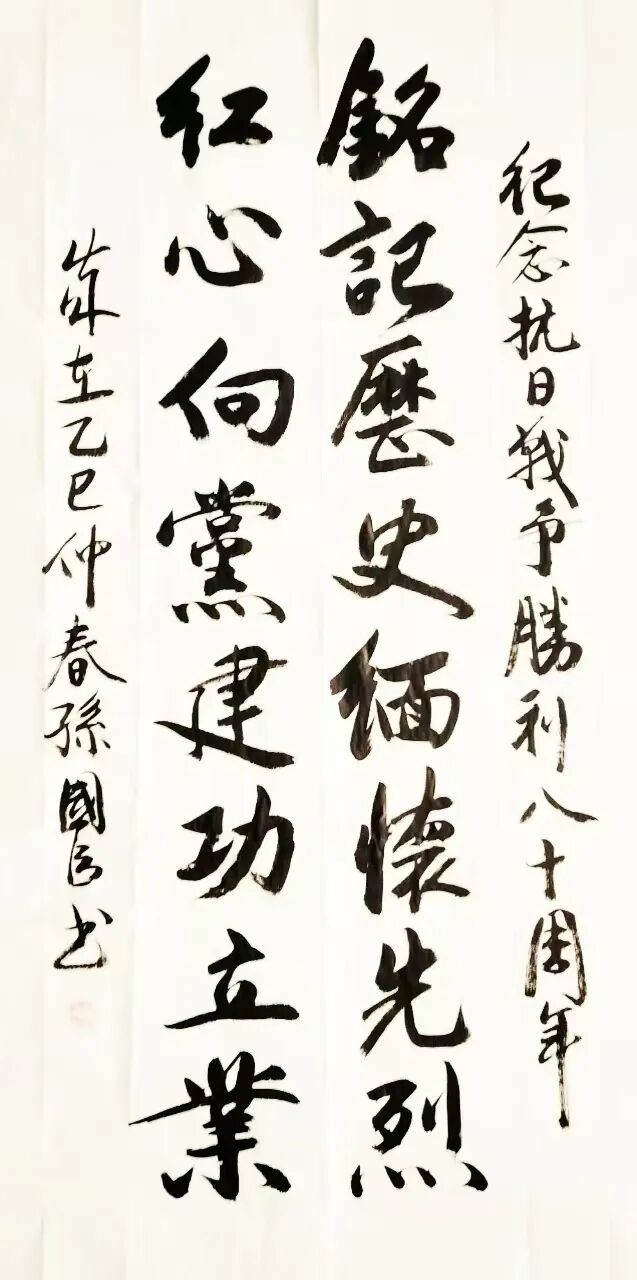 紀念抗日戰争勝利八十周年
銘記歷史緬懷先烈
紅心向黨建功立業
歲在乙巳仲春孫國良书